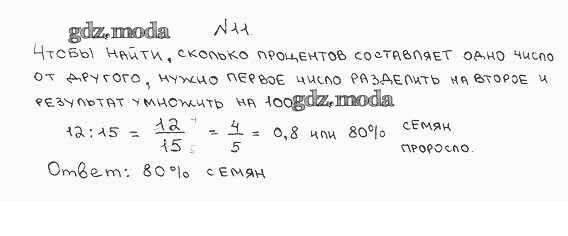 gdz.moda
№11.
Чтобы найти, сколько процентов составляет одно число
от другого, нужно первое число разделить на второе и
результат умножить на 100 gdz.moda
12:15 = 12/15 = 4/5 = 0,8 или 80% семян
проросло.
Ответ: 80% семян